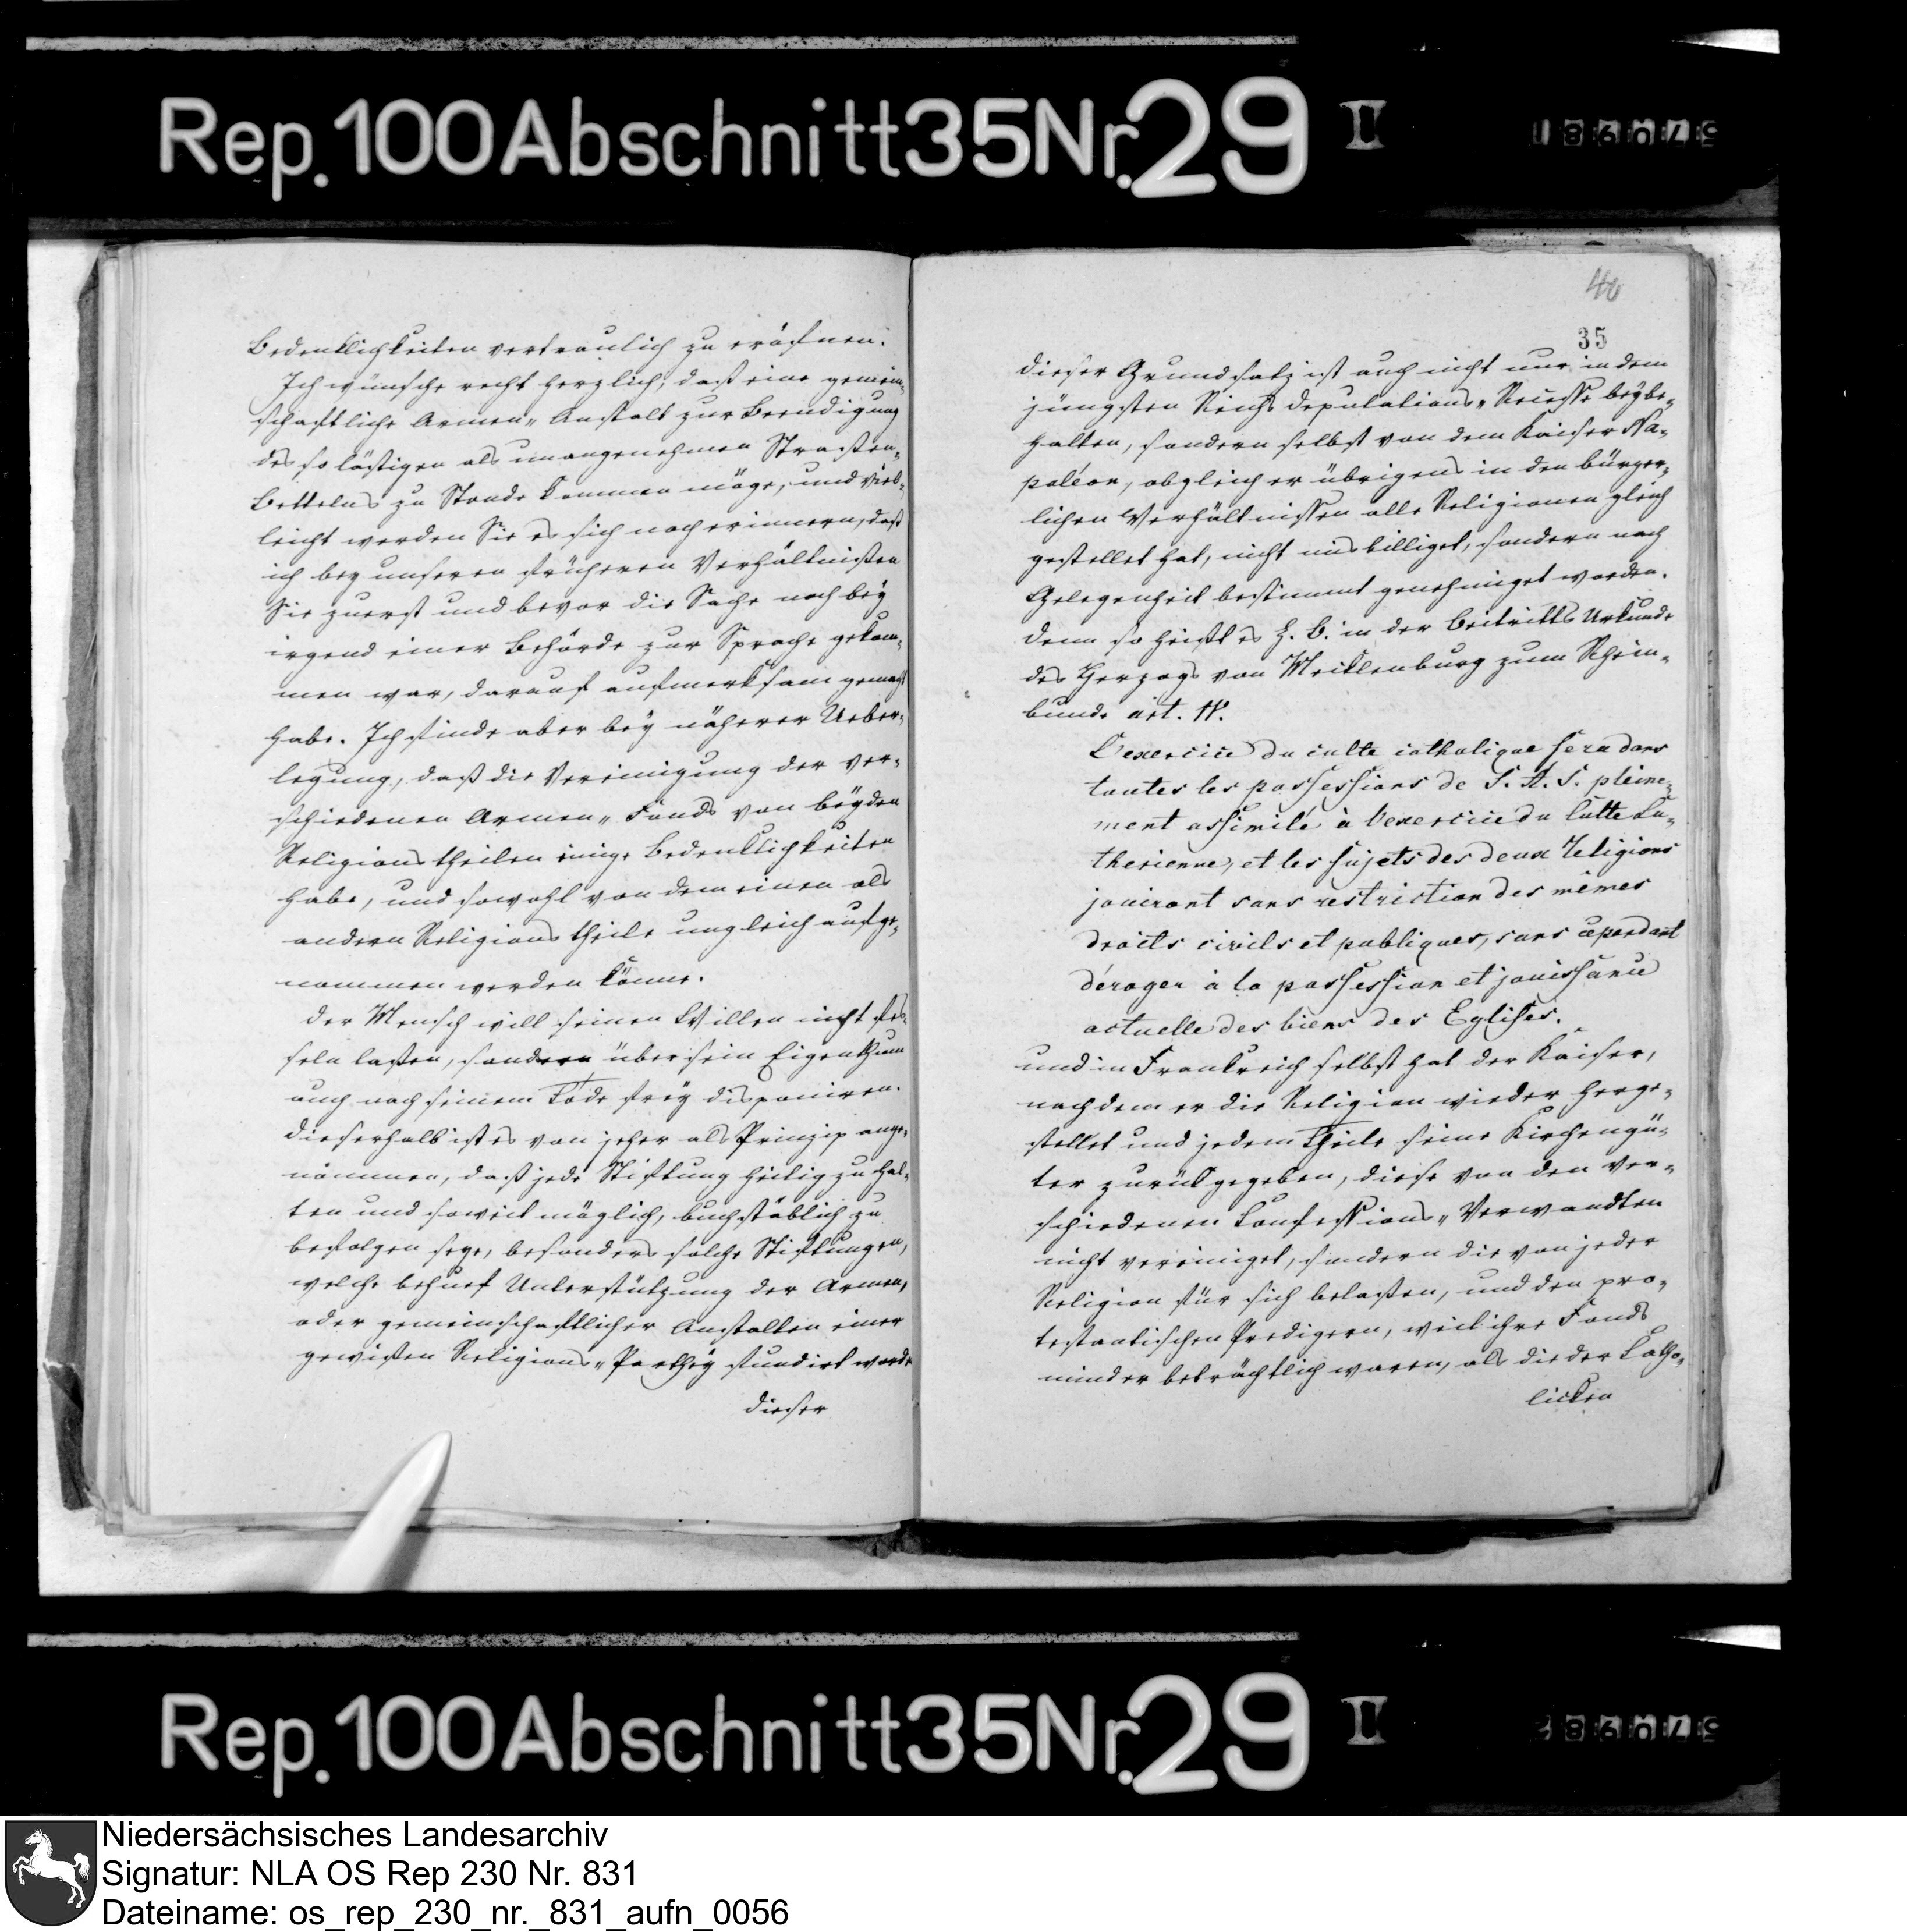 Rep. 100 Abschnitt 35 Nr. 29 I
Bedenklichkeiten vertraulich zu eröfnen.
Ich wünsche recht herzlich, daß eine gemein-
schaftliche Armen„ Anstalt zur Beendigung
des so lästigen als unangenehmen Straßen-
Bettelns zu Stande kommen möge, und viel-
leicht werden Sie es sich noch erinnern, daß
ich bey unseren früheren Verhältnißen
Sie zuerst und bevor die Sache noch bey
irgend einer Behörde zur Sprache gekom-
men war, darauf aufmerksam gemacht
habe. Ich finde aber bey näherer Ueber-
legung, daß die Vereinigung der ver-
schiedenen Armen„ Fonds von beyden
Religions theilen einige Bedenklichkeiten
habe, und sowohl von dem einen als
andern Religions theile ungleich aufge-
nommen werden könne.
Der Mensch will seinen Willen nicht fes-
seln laßen, sondern über sein Eigenthum
auch nach seinem Tode frey disponiren.
Dieserhalb ist es von jeher als Prinzip ange-
nommen, daß jede Stiftung heilig zu hal-
ten und soweit möglich, buchstäblich zu
befolgen seye, besonders solche Stiftungen,
welche behuef Unterstützung der Armen,
oder gemeinschaftlicher Anstalten einer
gewißen Religions„ Parthey fundirt worden
dieser
40
35
Dieser Grundsatz ist auch nicht nur in dem
jüngsten Reichs deputations„ Recesse beybe-
halten, sondern selbst von dem Kaiser Na-
poléon, obgleich er übrigens in den bürger-
lichen Verhältnissen alle Religionen gleich
gestellet hat, nicht misbilliget, sondern nach
Gelegenheit bestimmt genehmiget worden.
Denn so heißt es z. B. in der Beitritts Urkunde
des Herzogs von Mecklenburg zum Rhein-
bunde art. IV.
L'exercice du culte catholique sera dans
toutes les possessions de S. A. S. pleine-
ment assimilé à l'exercice du Culte Lu-
therienne, et les sujets des deux religions
jouiront sans restriction des mêmes
droits civils et publiques, sans cependant
déroger à la possession et jouissance
actuelle des biens des Eglises.
und in Frankreich selbst hat der Kaiser,
nachdem er die Religion wieder herge-
stellet und jedem Theile seine Kirchengü-
ter zurückgegeben, diese von den ver-
schiedenen Confessions„ Verwandten
nicht vereiniget, sondern die von jeder
Religion für sich belaßen, und den pro-
testantischen Predigern, weil ihre Fonds
minder beträchtlich waren, als die der Catho-
licken
Rep. 100 Abschnitt 35 Nr. 29 I
Niedersächsisches Landesarchiv
Signatur: NLA OS Rep 230 Nr. 831
Dateiname: os_rep_230_nr._831_aufn_0056